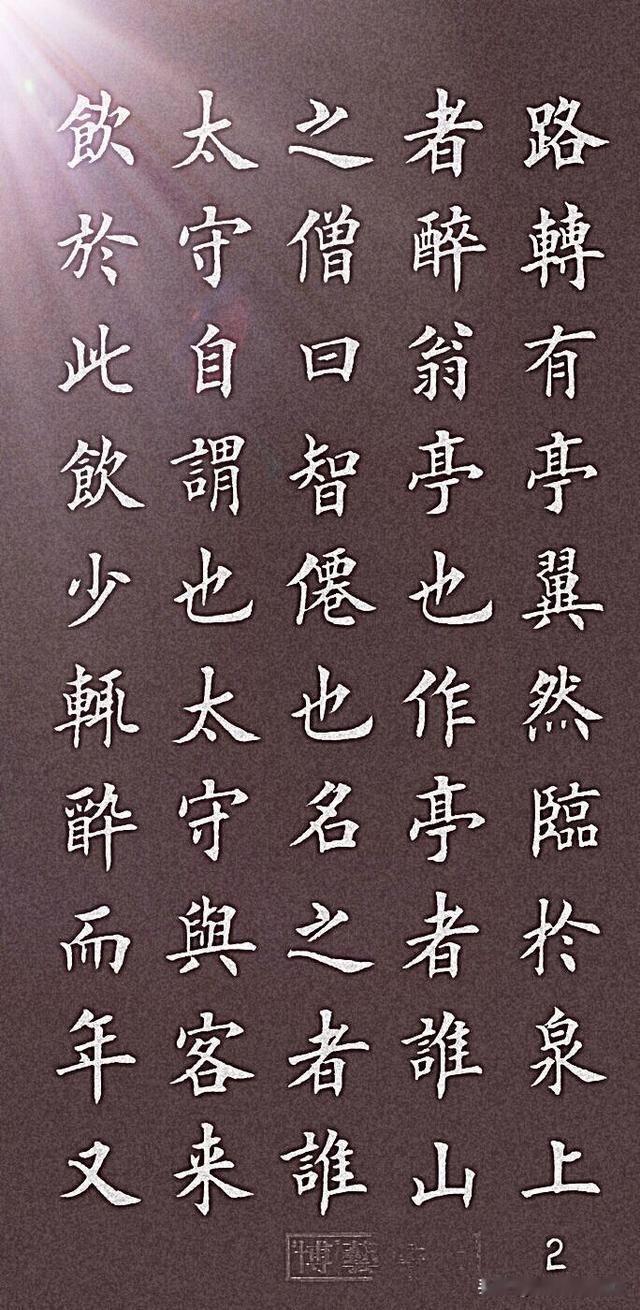 路轉有亭翼然臨於泉上
者醉翁亭也作亭者誰山
之僧曰智僊也名之者誰
太守自謂也太守與客来
飲於此飲少輒醉而年又
2
博藝